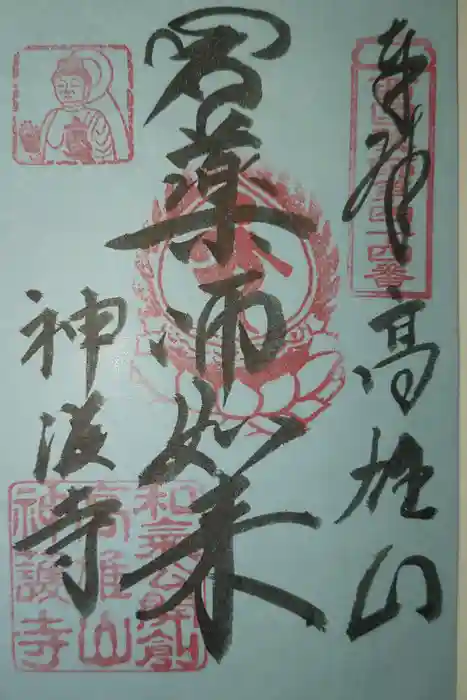 奉拝
四十四番
高雄山
薬師如来
神護寺
和氣公創
高雄山
神護寺